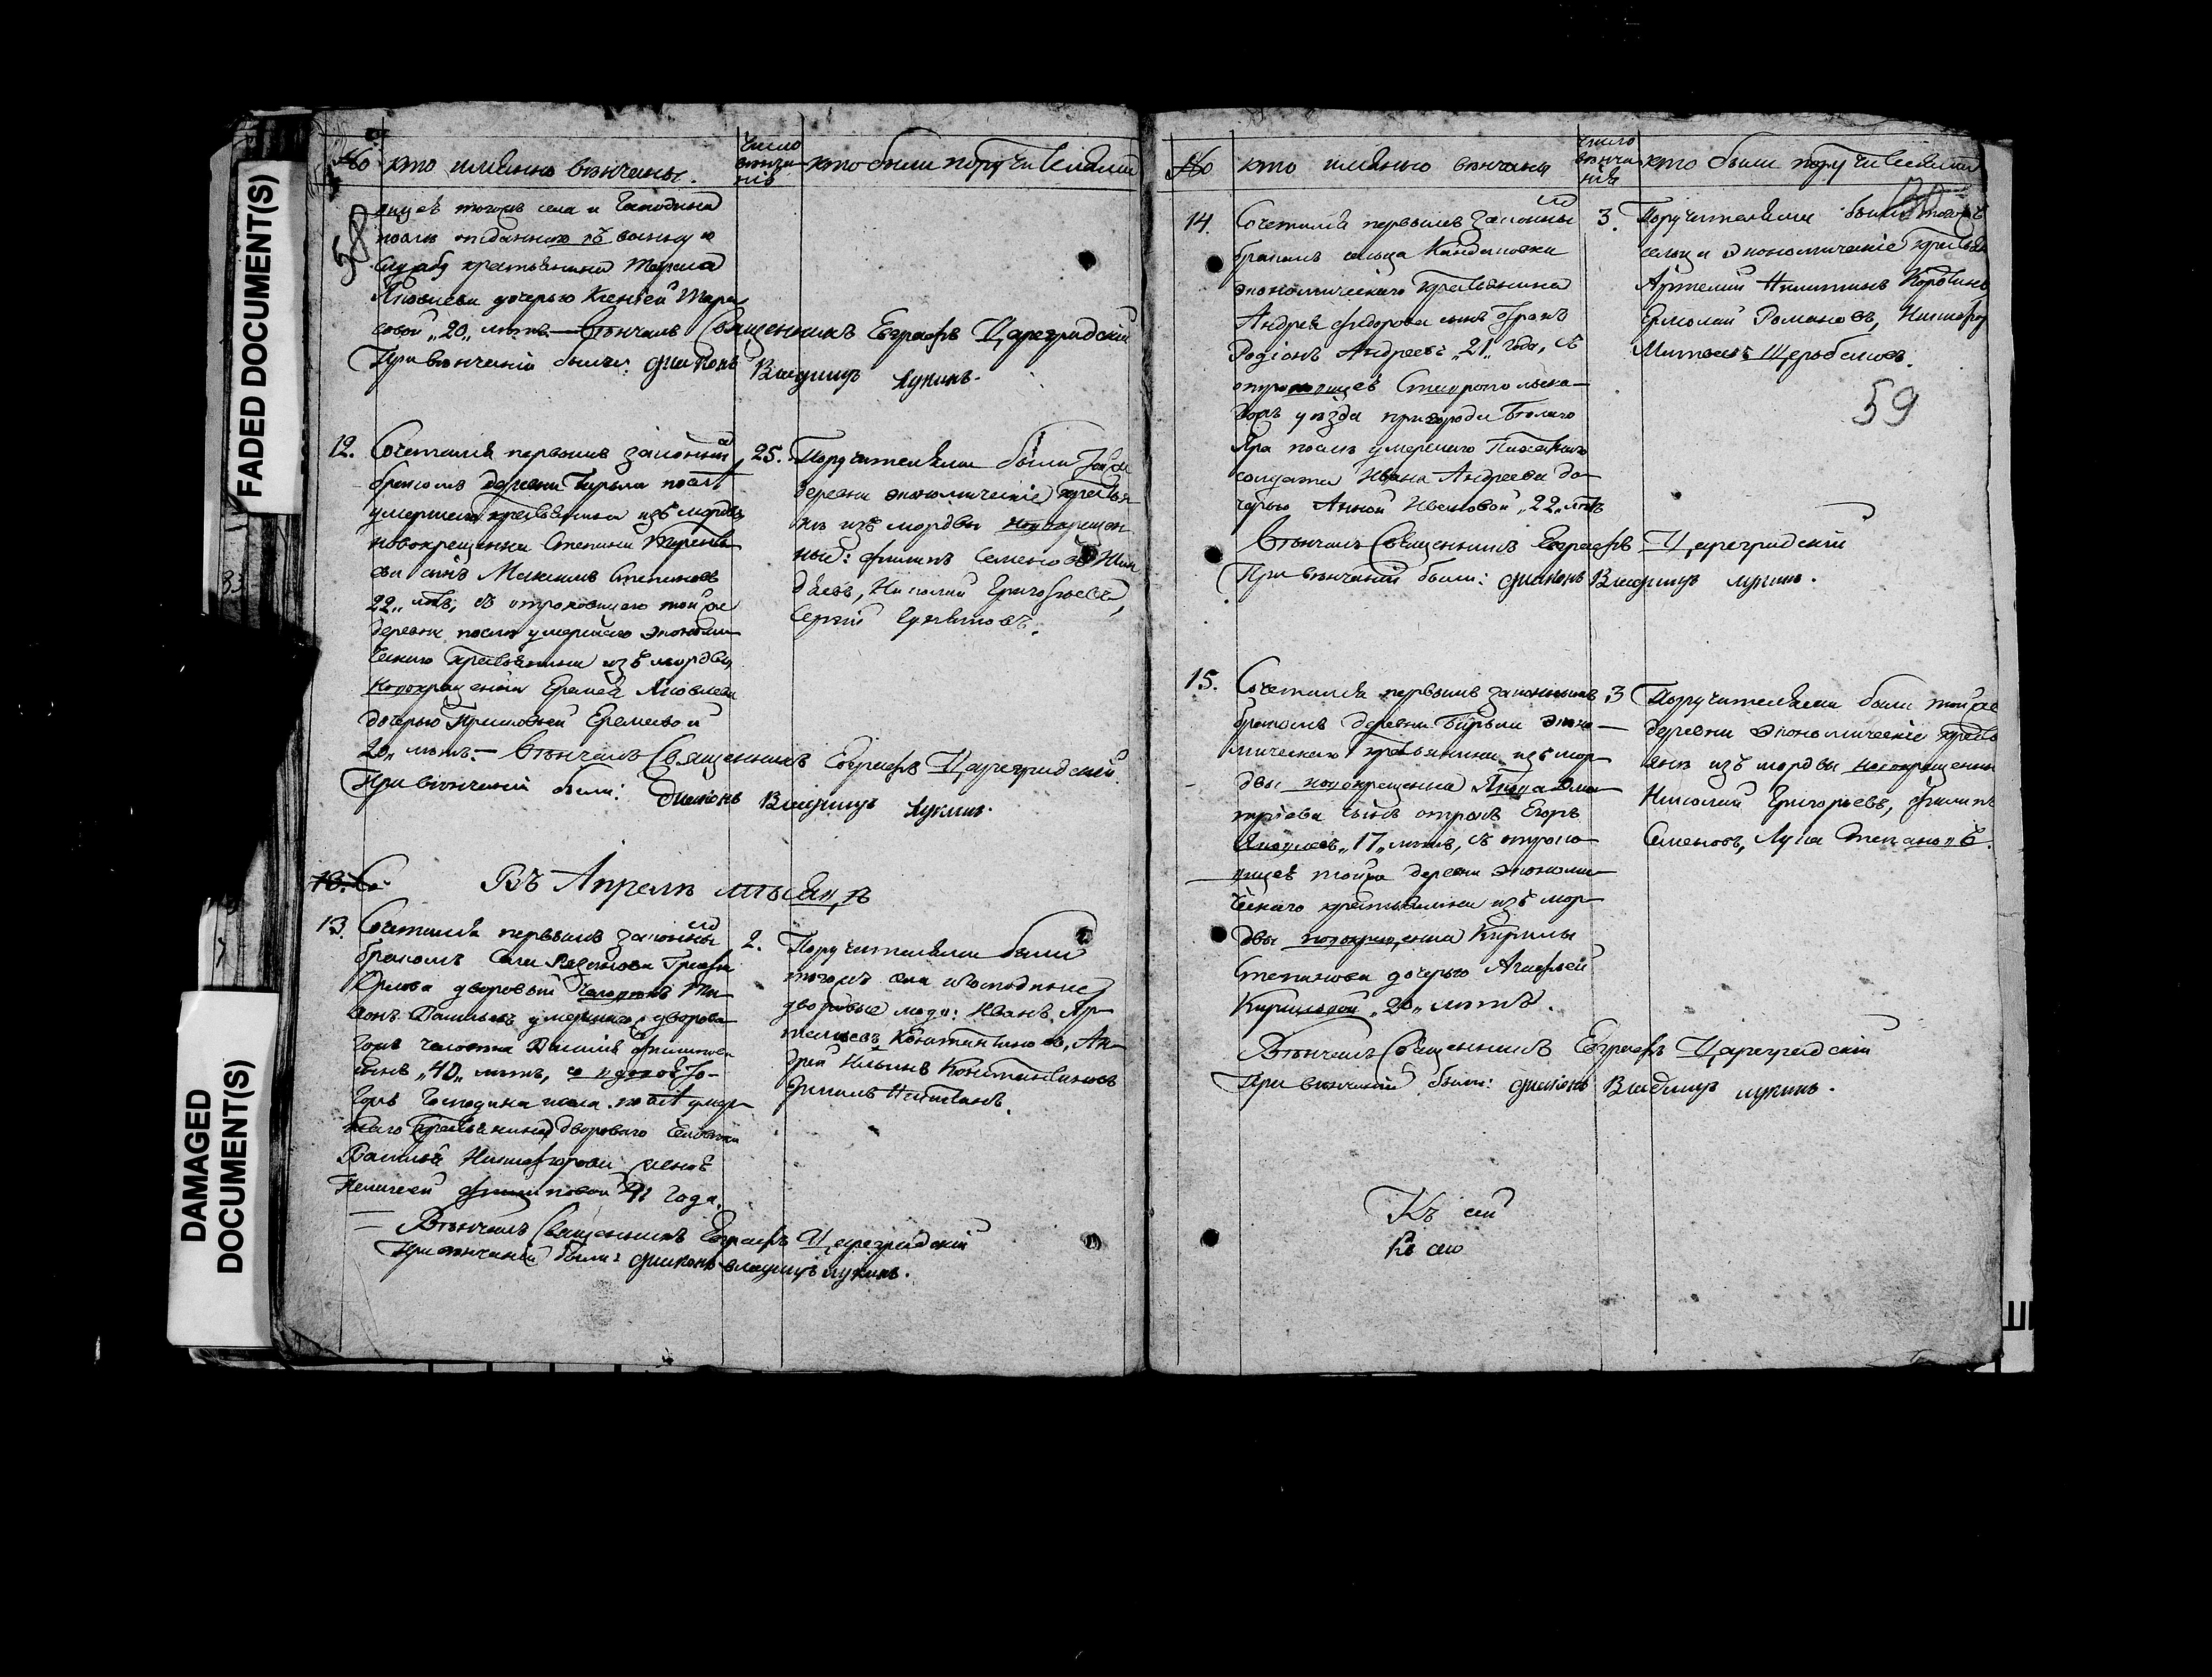 FADED DOCUMENT(S)
DAMAGED
DOCUMENT(S)
№ кто имянно вѣнчаны.
Число
вѣнча
нія
кто были поручителями
58
вицеѣ тогожъ села и Господина
послѣ отданнаго въ военную
службу крестьянина Тараса
Яковлева дочерью Ксеніей Тара
совой „20„ лѣтъ. — Вѣнчалъ Священникъ Евграфъ Цареградскій
При вѣнчаніи были: діаконъ Владимиръ Лукинъ.
12. Сочетался первымъ законнымъ
бракомъ деревни Бирли послѣ
умершаго крестьянина изъ мордвы
новокрещенна Степана
сынъ Максимъ Степановъ
22„ лѣтъ, съ отроковицею той же
деревни послѣ умершаго экономи
ческаго крестьянина изъ мордвы
новокрещенна Еремея Яковлева
дочерью Еремеевой
20„ лѣтъ. — Вѣнчалъ Священникъ Евграфъ Цареградскій.
При вѣнчаніи были: діаконъ Владимиръ Лукинъ.
25. Поручителями были той же
деревни экономическіе крестья
не изъ мордвы новокрещен
ные: Филипъ Семеновъ
Николай Григорьевъ,
Сергій
Въ Апрелѣ мѣсяцѣ
13. Сочетался первымъ законнымъ
бракомъ села Рязанова Графа
Орлова дворовый человѣкъ
умершаго дворова
гожъ человѣка Василія Филипова
сынъ „40„ лѣтъ, со вдовой то
гожъ Господина послѣ умер
шаго крестьянина дворового человѣка
Василья Никифорова женой
Пелагеей Филиповой 41 года.
Вѣнчалъ Священникъ Евграфъ Цареградскій
При вѣнчаніи были: діаконъ Владимиръ Лукинъ.
2. Поручителями были
тогожъ села и Господина
дворовые люди: Иванъ Ар
темьевъ Константиновъ, Ан
дрей Ильинъ Константиновъ
Филипъ Никитинъ.
№ кто имянно вѣнчаны
Число
вѣнча
нія
кто были поручителями
14. Сочетался первымъ законнымъ
бракомъ сельца Кандаловки
экономическаго крестьянина
Андрея Федорова сынъ отрокъ
Родіонъ Андреевъ „21„ года, съ
отроковицеѣ Ставропольска
гожъ уѣзда пригорода Бѣлаго
Яра послѣ умершаго
солдата Ивана Андреева до
черью Анной Ивановой „22„ лѣтъ
Вѣнчалъ Священникъ Евграфъ Цареградскій
При вѣнчаніи были: діаконъ Владимиръ Лукинъ.
3. Поручителями были тогожъ
сельца экономическіе крестьяне
Артемій Никитинъ Коровинъ
Ермолай Романовъ, Никифоръ
Матвеевъ Щербаковъ.
59
15. Сочетался первымъ законнымъ
бракомъ деревни Бирли эконо
мическаго крестьянина изъ мор
двы новокрещенна Якова Дми
тріева сынъ отрокъ Егоръ
Яковлевъ „17„ лѣтъ, съ отроко
вицеѣ той же деревни экономи
ческаго крестьянина изъ мор
двы новокрещенна Кирилы
Степанова дочерью Агафьей
Кириловой „20„ лѣтъ.
Вѣнчалъ Священникъ Евграфъ Цареградскій
При вѣнчаніи были: діаконъ Владимиръ Лукинъ.
3 Поручителями были той же
деревни экономическіе кресть
яне изъ мордвы новокрещенны
Николай Григорьевъ, Филипъ
Семеновъ, Лука Степановъ.
Къ сей
Къ сей